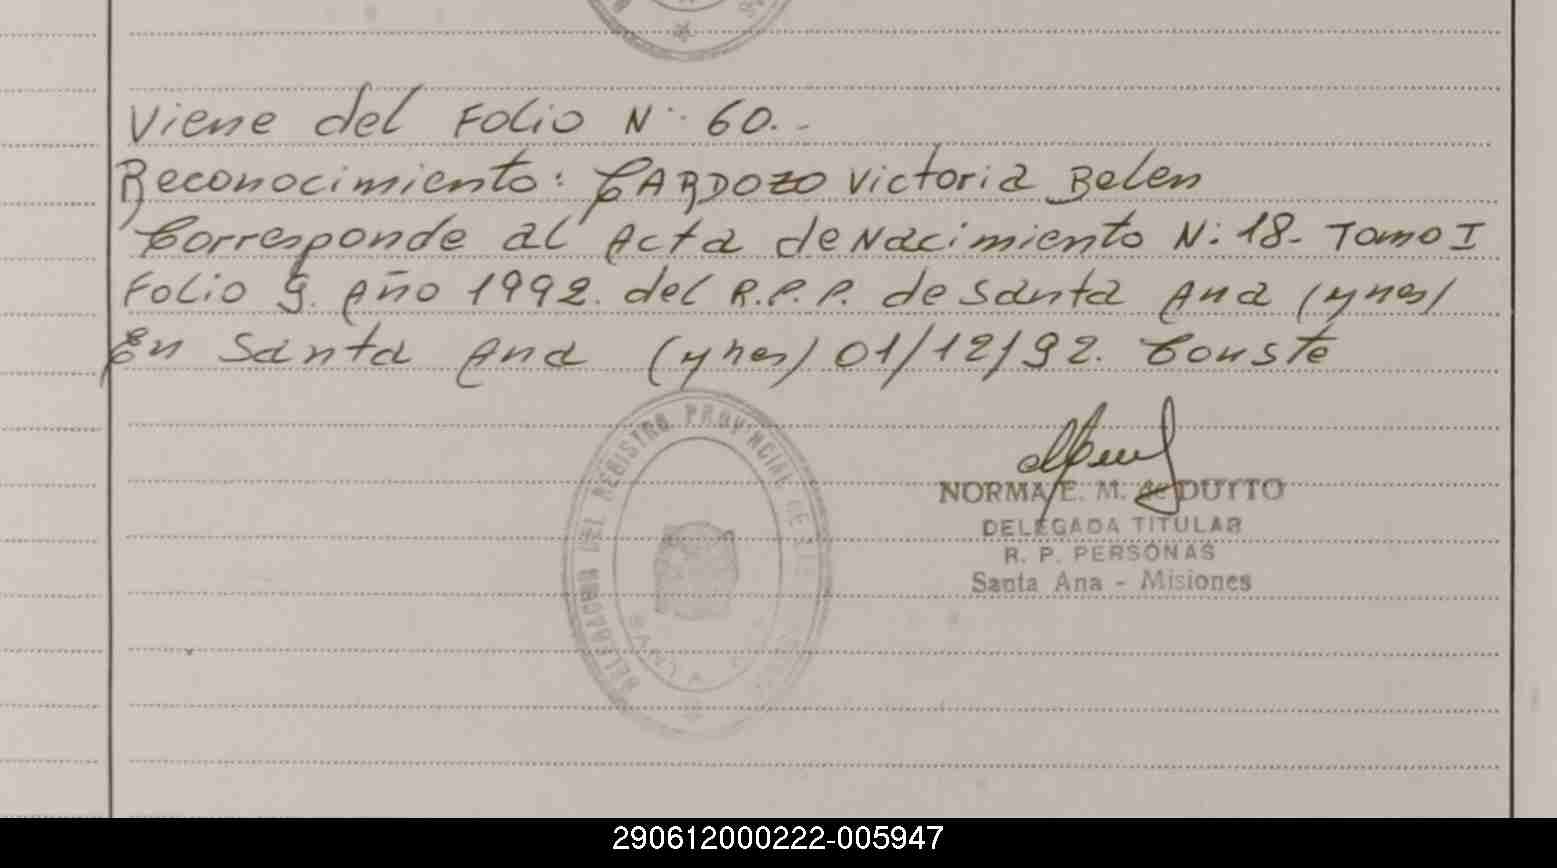 Viene del Folio N° 60.-
Reconocimiento: CARDOZO Victoria Belen
Corresponde al Acta de Nacimiento N: 18- Tomo I
Folio 9. Año 1992. del R.P.P. de Santa Ana (Mnes)
En Santa Ana (Mnes) 01/12/92. Conste
DELEGACION DEL REGISTRO PROVINCIAL DE
NORMA E. M. de DUTTO
DELEGADA TITULAR
R. P. PERSONAS
Santa Ana - Misiones
290612000222-005947